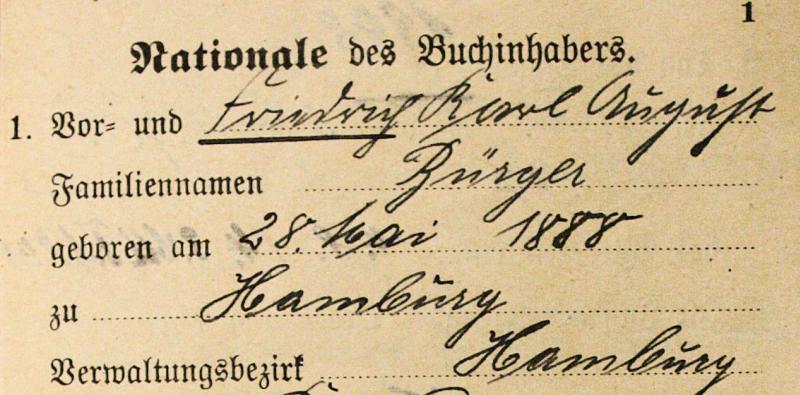 1
Nationale des Buchinhabers.
1. Vor- und Friedrich Karl August
Familiennamen Bürger
geboren am 28. Mai 1888
zu Hamburg
Verwaltungsbezirk Hamburg